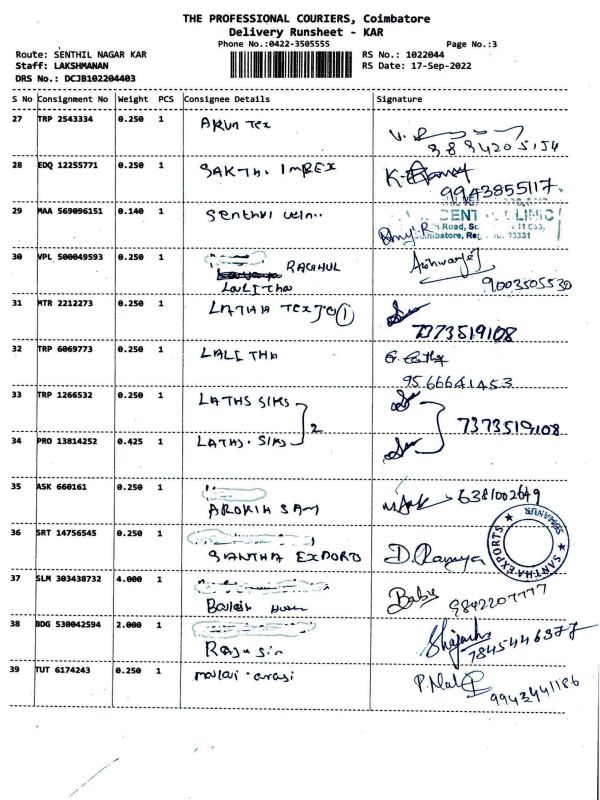 THE PROFESSIONAL COURIERS, Coimbatore
Delivery Runsheet - KAR
Phone No.:0422-3505555 Page No.:3
Route: SENTHIL NAGAR KAR RS No.: 1022044
Staff: LAKSHMANAN RS Date: 17-Sep-2022
DRS No.: DCJB102204403
S No Consignment No Weight PCS Consignee Details Signature
27 TRP 2543334 0.250 1 ARUN Tex
28 EDQ 12255771 0.250 1 SAKTHI IMPEX
9943855117
29 MAA 569096151 0.140 1 Senthil
30 VPL 500049593 0.250 1 RAGHUL
Lalitha
9003505530
31 MTR 2212273 0.250 1 LATHA Tex 1
7373519108
32 TRP 6069773 0.250 1 LALITHA
9566641453
33 TRP 1266532 0.250 1 LATHS SIKS
2 7373519108
34 PRO 13814252 0.425 1 LATHS. SIKS
35 ASK 660161 0.250 1 6381002649
AROKIA SAM
36 SRT 14756545 0.250 1
SANTHA EXPORTS
SANTHA EXPORTS
37 SLM 303438732 4.000 1
Babu 9842207777
38 BDG 530042594 2.000 1
7845446377
39 TUT 6174243 0.250 1 malai arasi
9943441186